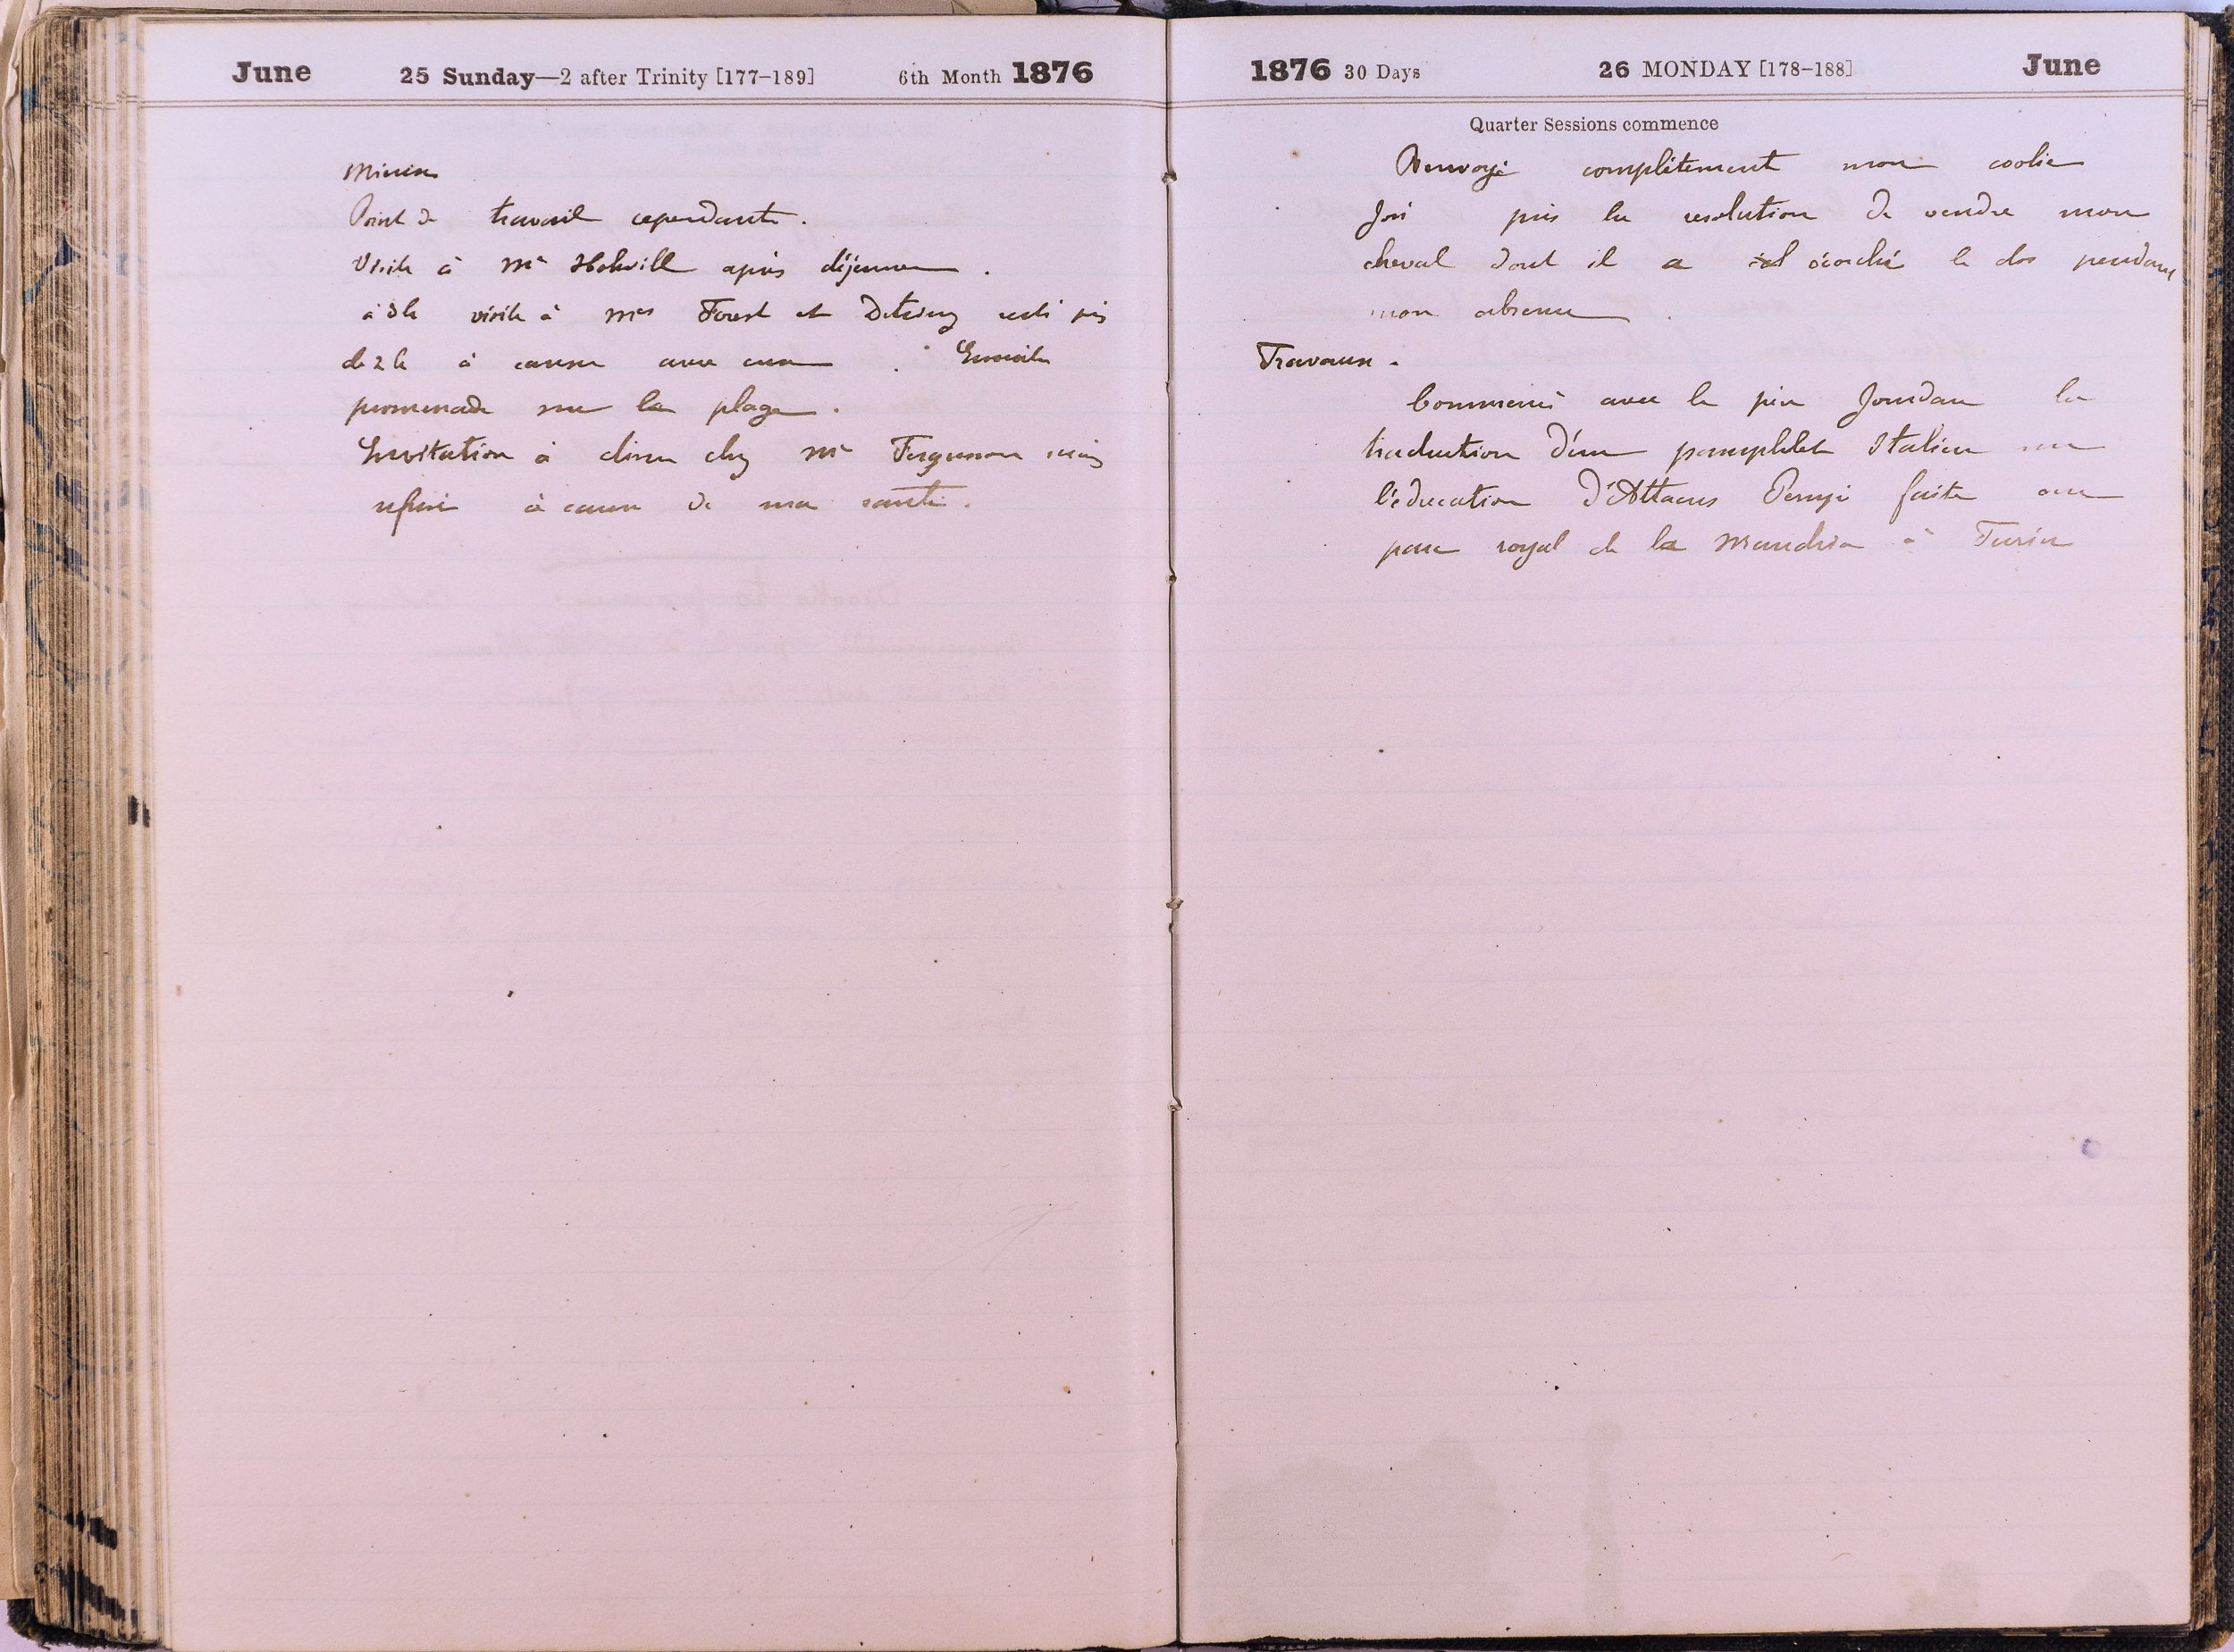 June 25 Sunday—2 after Trinity [177-189] 6th Month 1876
Mieux
Point de travail cependant.
Visite à Mr après déjeuner.
à 3h visite à Mrs Forest et Detring resté près
de 2h à causer avec eux. Ensuite
promenade sur la plage.
Invitation à diner chez Mr Fergusson mais
refusé à cause de ma santé.
1876 30 Days 26 MONDAY [178-188] June
Quarter Sessions commence
Renvoyé complètement mon coolie
pris la resolution de vendre mon
cheval dont il a écorché le dos pendant
mon absence.
Travaux.
Commencé avec le père Jourdan la
traduction d'un pamphlet Italien sur
l'éducation d'Attacus Pernyi faite au
parc royal de la Mandria à Turin